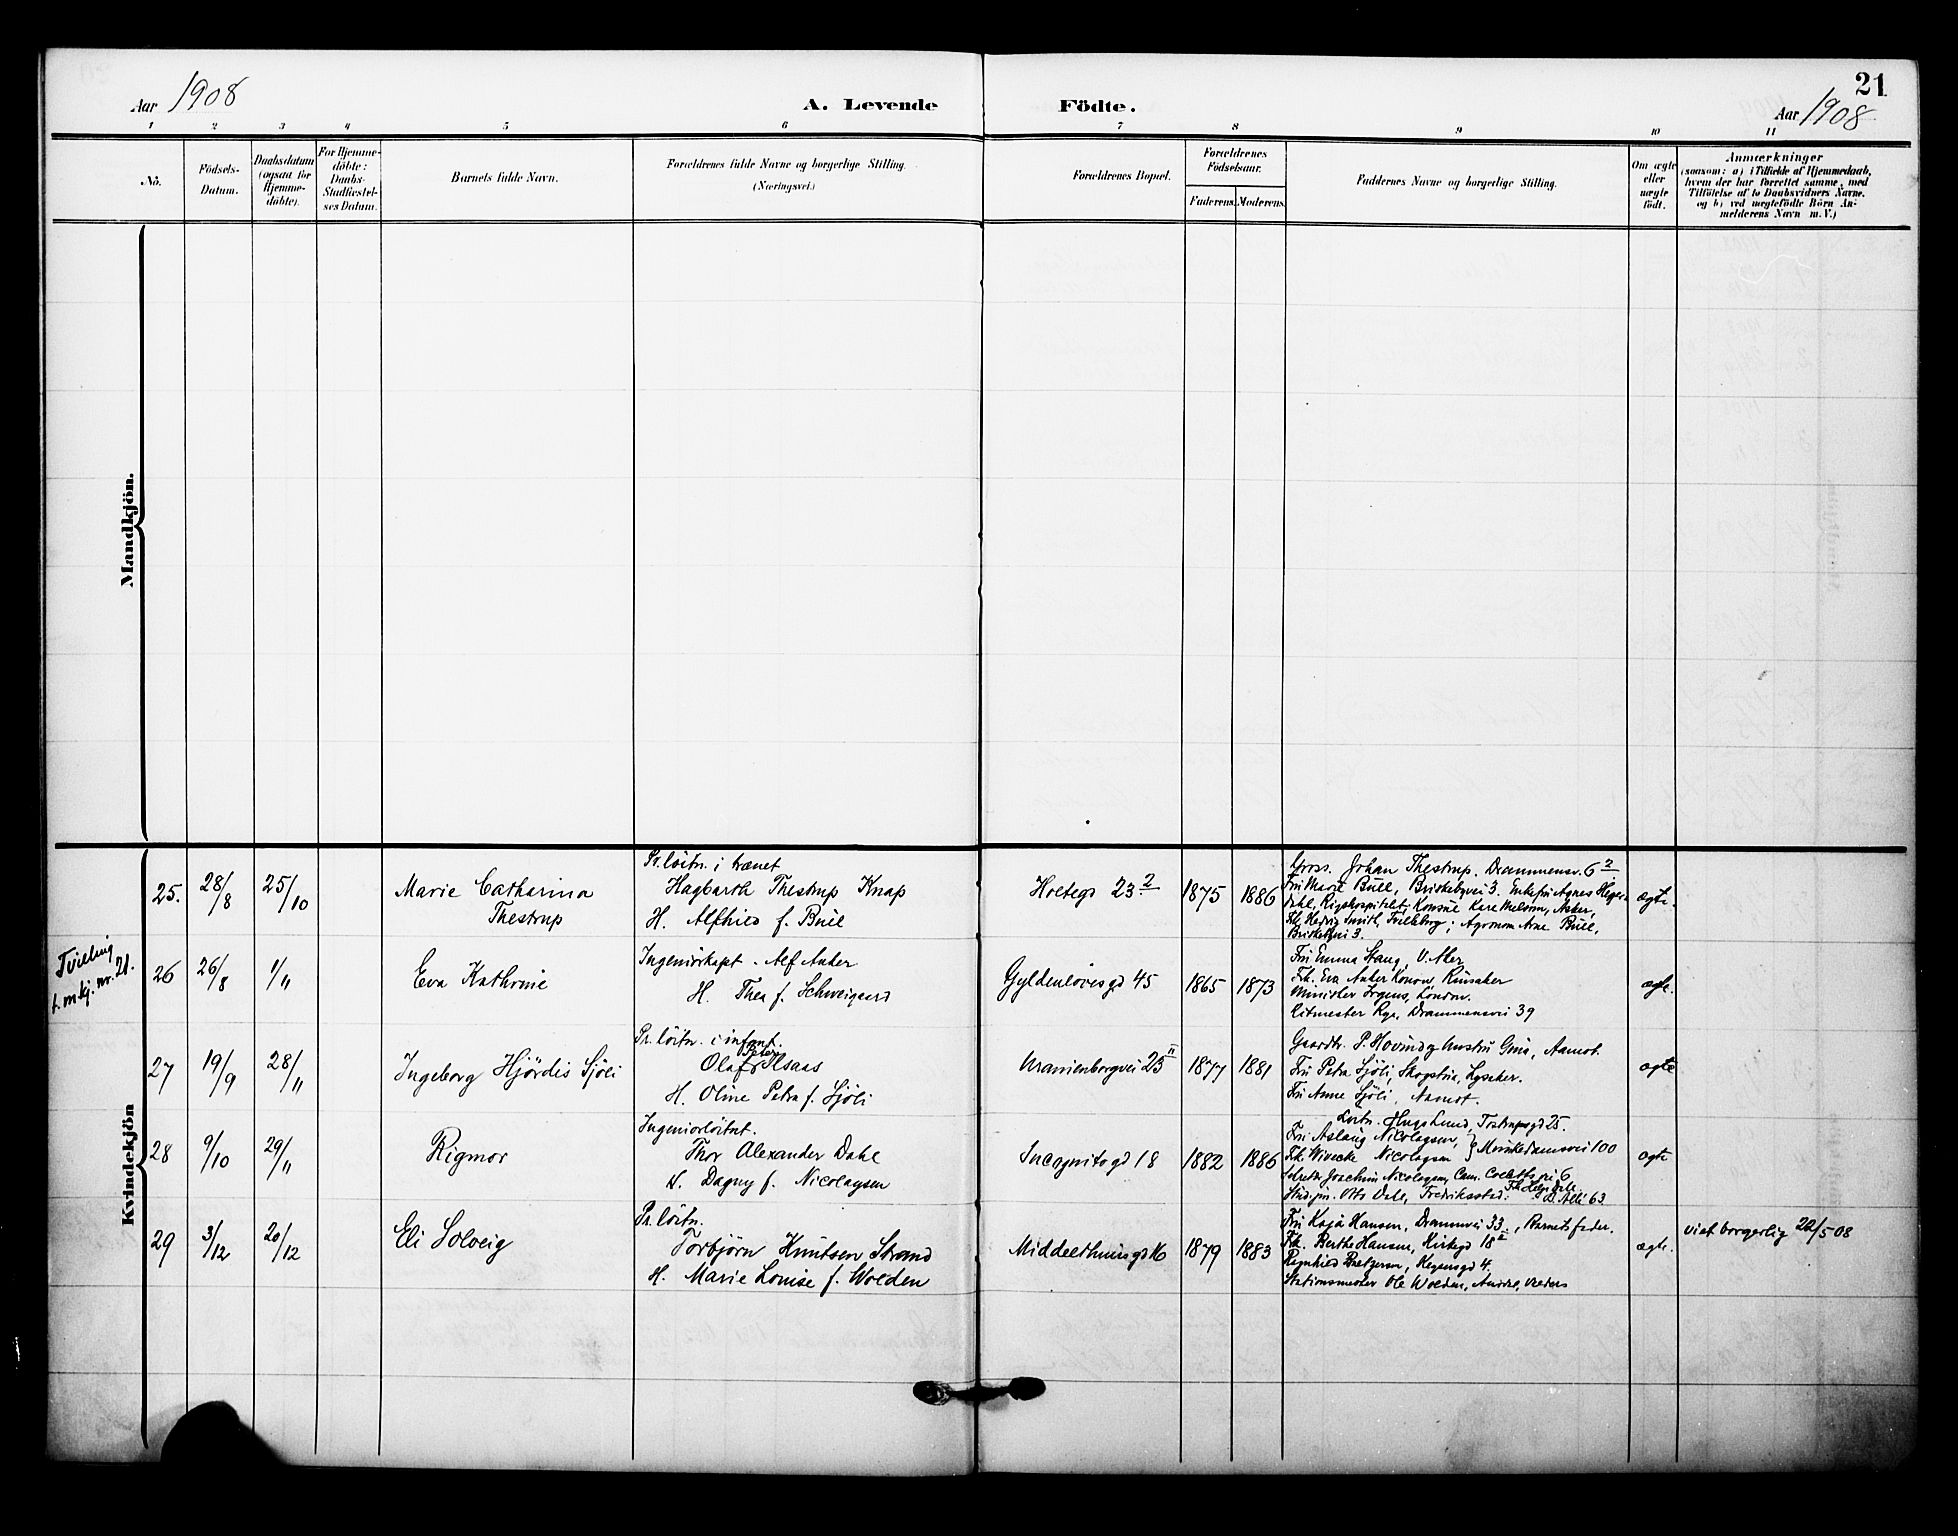 21
Aar 1908 A. Levende Födte. Aar 1908
1 2 3 4 5 6 7 8 9 10 11
No.
Födsels-
Datum.
Daabsdatum
(ogsaa for
Hjemme-
döbte).
For Hjemme-
döbte:
Daabs-
Stadfæstel-
ses Datum.
Barnets fulde Navn.
Forældrenes fulde Navne og borgerlige Stilling.
(Næringsvei.)
Forældrenes Bopæl.
Forældrenes
Födselsaar.
Faderens. Moderens.
Faddernes Navne og borgerlige Stilling.
Om ægte
eller
uægte
födt.
Anmærkninger
(saasom: a) i Tilfælde af Hjemmedaab,
hvem der har forrettet samme, med
Tilföielse af to Daabsvidners Navne.
og b) ved uægtefödte Börn An-
melderens Navn m. V.)
Mandkjön.
Kvindekjön
25. 28/8 25/10
Marie Catharina
Thestrup
Pr. löitn. i trænet
Hagbarth Thestrup Knap
H. Alfhild f. Bull
Holtegd 23 2
1875 1886
Gross. Johan Thestrup. Drammensv. 6 2
Fru Marie Bull, Briskebyvei 3. Enkefru Agnes Heyer-
dahl, Rigshospitalet, Konsul Kare Melsom, Asker,
Frk. Hedvig Smith, ; Agronom Arne Bull,
Briskebyvei 3.
ægte.
Tvilling
t. mkj. nr. 21.
26 26/8 1/11
Eva Kathrine
Ingeniörkapt. Alf Anker
H. Thea f. Schweigaard
Gyldenlövesgd 45
1865 1873
Fru Emma Stang, V. Aker
Frk. Eva Anker Konow,
Minister Irgens, London.
Ritmester Rye, Drammensvei 39
ægte.
27 19/9 28/11
Ingeborg Hjördis Sjöli
Pr. löitn. i infant.
Olaf Peter Ilsaas
H. Oline Petra f. Sjöli
Uranienborgvei 25 II
1877 1881
Gaardbr. P. Hovind og hustru Gina, Aamot.
Fru Petra Sjöli, Lysaker.
Fru Anne Sjöli, Aamot.
ægte
28 9/10 29/11
Rigmor
Ingeniorlöitnt.
Thor Alexander Dahl
H. Dagny f. Nicolaysen
Incognitogd 18
1882 1886
Löitn. Hugo Lund, Tostrupsgd 25.
Fru Aslaug Nicolaysen,
Frk. Wivecke Nicolaysen } Munkedamsvei 100
Joachim Nicolaysen, Cam. Collettsvei 6
Stud. jur. Otto Dahl, Fredriksstad. Frk. Helga Dahl
63
ægte
29 3/12 20/12
Eli Solveig
Pr. löitn.
Torbjörn Knutsen Strand
H. Marie Louise f. Wolden
Middelthunsgd 16
1879 1883
Fru Kaja Hansen, Drammvei 33, Barnets fader.
Frk. Berthe Hansen, Kirkegd 18
Ragnhild
Stationsmester Ole Wolden,
ægte.
viet borgerlig 22/5-08